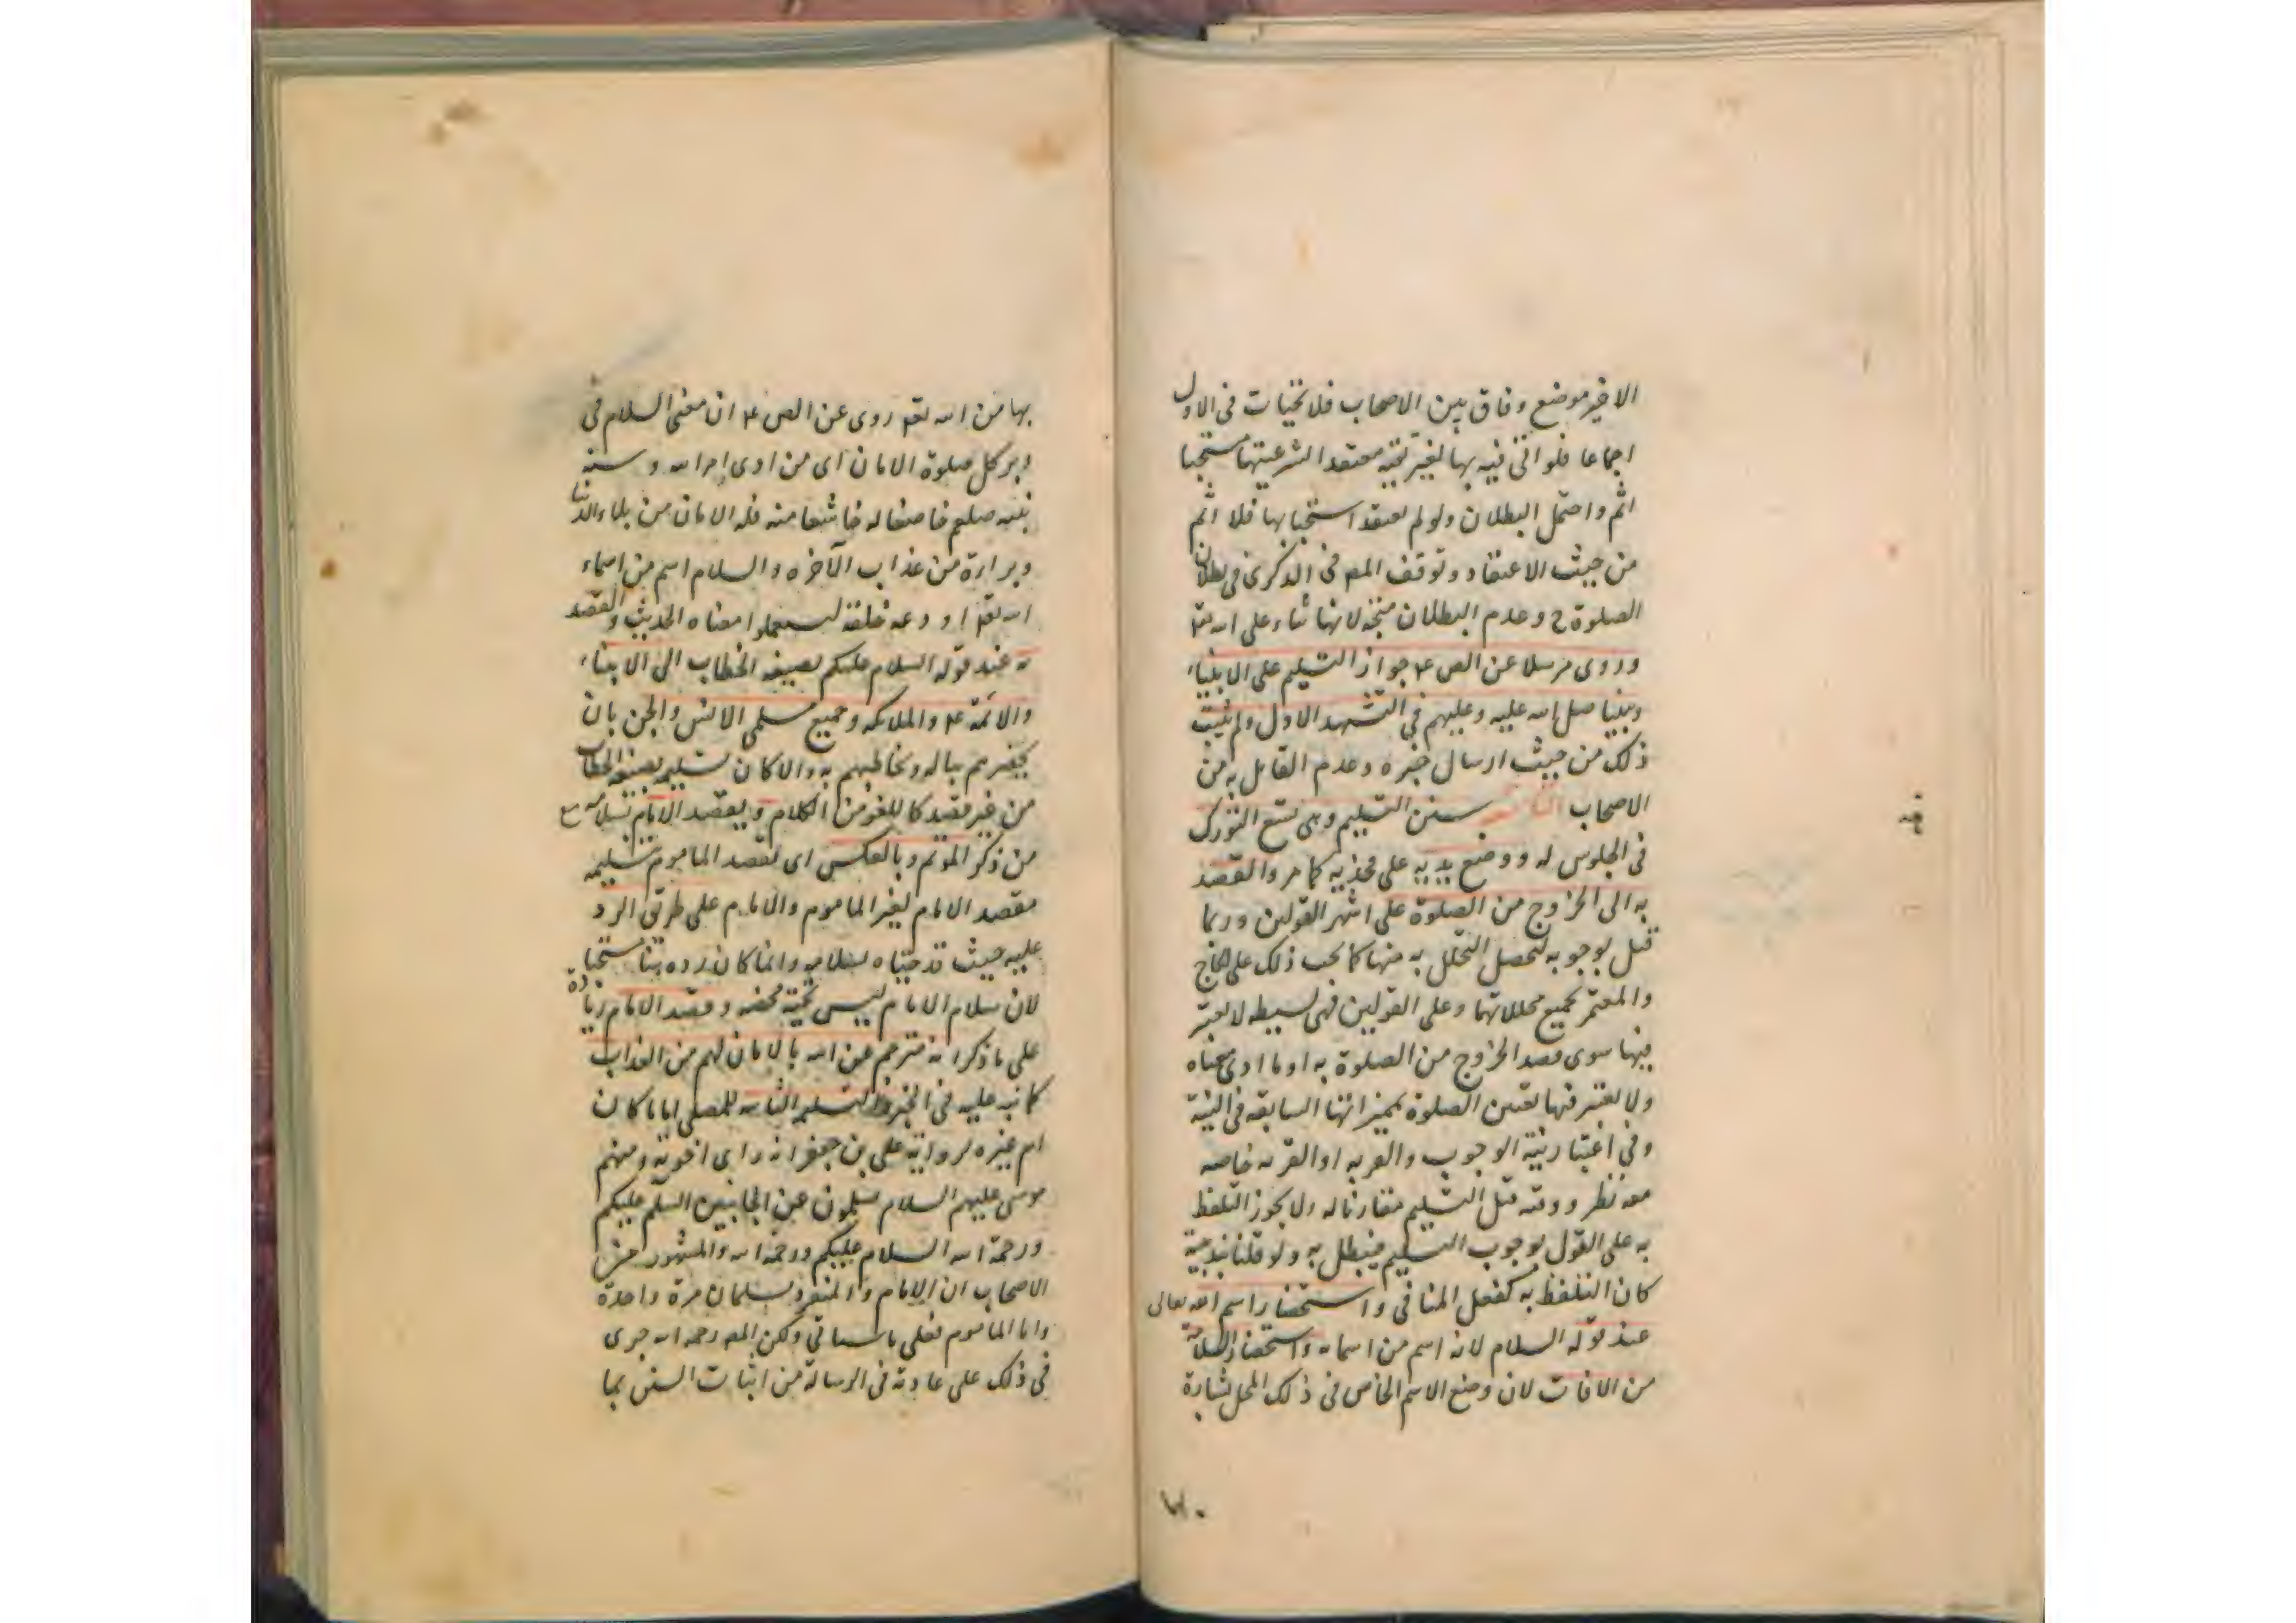 الاخير موضع وفاق بين الاصحاب فلا تحيات فى الاول
اجماعا فلو اتى فيه بها لغير تقية معتقدا لشرعيتها مستحبا
اثم واحتمل البطلان ولو لم يعتقد استحبابها فلا اثم
من حيث الاعتقاد وتوقف المصـ فى الذكرى فى بطلان
الصلوة ح وعدم البطلان متجه لانها ثناء على الله تعـ
وروى مرسلا عن الصـ ع جواز التسليم على الانبياء
ونبينا صلى الله عليه وعليهم فى التشهد الاول ولم يثبت
ذلك من حيث ارسال خبره وعدم القايل به من
الاصحاب سنن التسليم وهى تسع التورك
فى الجلوس له ووضع يديه على فخذيه كما مر والقصد
به الى الخروج من الصلوة على اشهر القولين وربما
قيل بوجوبه لتحصل التحلل به منها كما يجب ذلك على الحاج
والمعتمر بجميع محللاتهما وعلى القولين فهى بسيطه لا يعتبر
فيها سوى قصد الخروج من الصلوة به او ما ادى معناه
ولا يعتبر فيها تعيين الصلوة بمميزاتها السابقه فى النية
وفى اعتبار نية الوجوب والقربه او القربه خاصه
معه نظر ووقته قبل التسليم مقارنا له ولا يجوز التلفظ
به على القول بوجوب التسليم فيبطل به ولو قلنا بندبيته
كان التلفظ به كفعل المنافى واستحضار اسم الله تعالى
عند قوله السلام لانه اسم من اسمائه واستحضار السلامة
من الافات لان وضع الاسم الخاص فى ذلك المحل بشارة
٧٠
بها من الله تعـ روى عن الصـ ع ان معنى السلام فى
دبر كل صلوة الامان اى من ادى امر الله وسنة
نبيه صلعم خاضعا له خاشعا منه فله الامان من بلاء الدنيا
وبراءة من عذاب الآخره والسلام اسم من اسماء
الله تعـ اودعه خلقه ليستعملوا معناه الحديث والقصد
به عند قوله السلام عليكم بصيغة الخطاب الى الانبياء
والائمة ع والملائكه وجميع مسلمى الانس والجن بان
يحضرهم بباله ويخاطبهم به والا كان تسليمه بصيغه الخطاب
من غير قصد كاللغو من الكلام ويقصد الامام بسلامه
من ذكر المؤتم وبالعكس اى يقصد الماموم بتسليمه
مقصد الامام لغير الماموم والامام على طريق الرد
عليه حيث قد حياه بسلامه وانما كان رده هنا مستحبا
لان سلام الامام ليس تحية محضه وقصد الامام زيادة
على ما ذكر انه مترجم عن الله بالامان لهم من العذاب
كما نبه عليه فى الخبر والتسليم الثانيه للمصلى اماما كان
ام غيره لرواية على بن جعفر انه راى اخوته ومنهم
موسى عليهم السلام يسلمون عن الجانبين السلم عليكم
ورحمة الله السلام عليكم ورحمة الله والمشهور بين
الاصحاب ان الامام والمنفرد يسلمان مرة واحدة
واما الماموم فعلى ما سياتى ولكن المصـ رحمه الله جرى
فى ذلك على عادته فى الرسالة من اثبات السنن بما